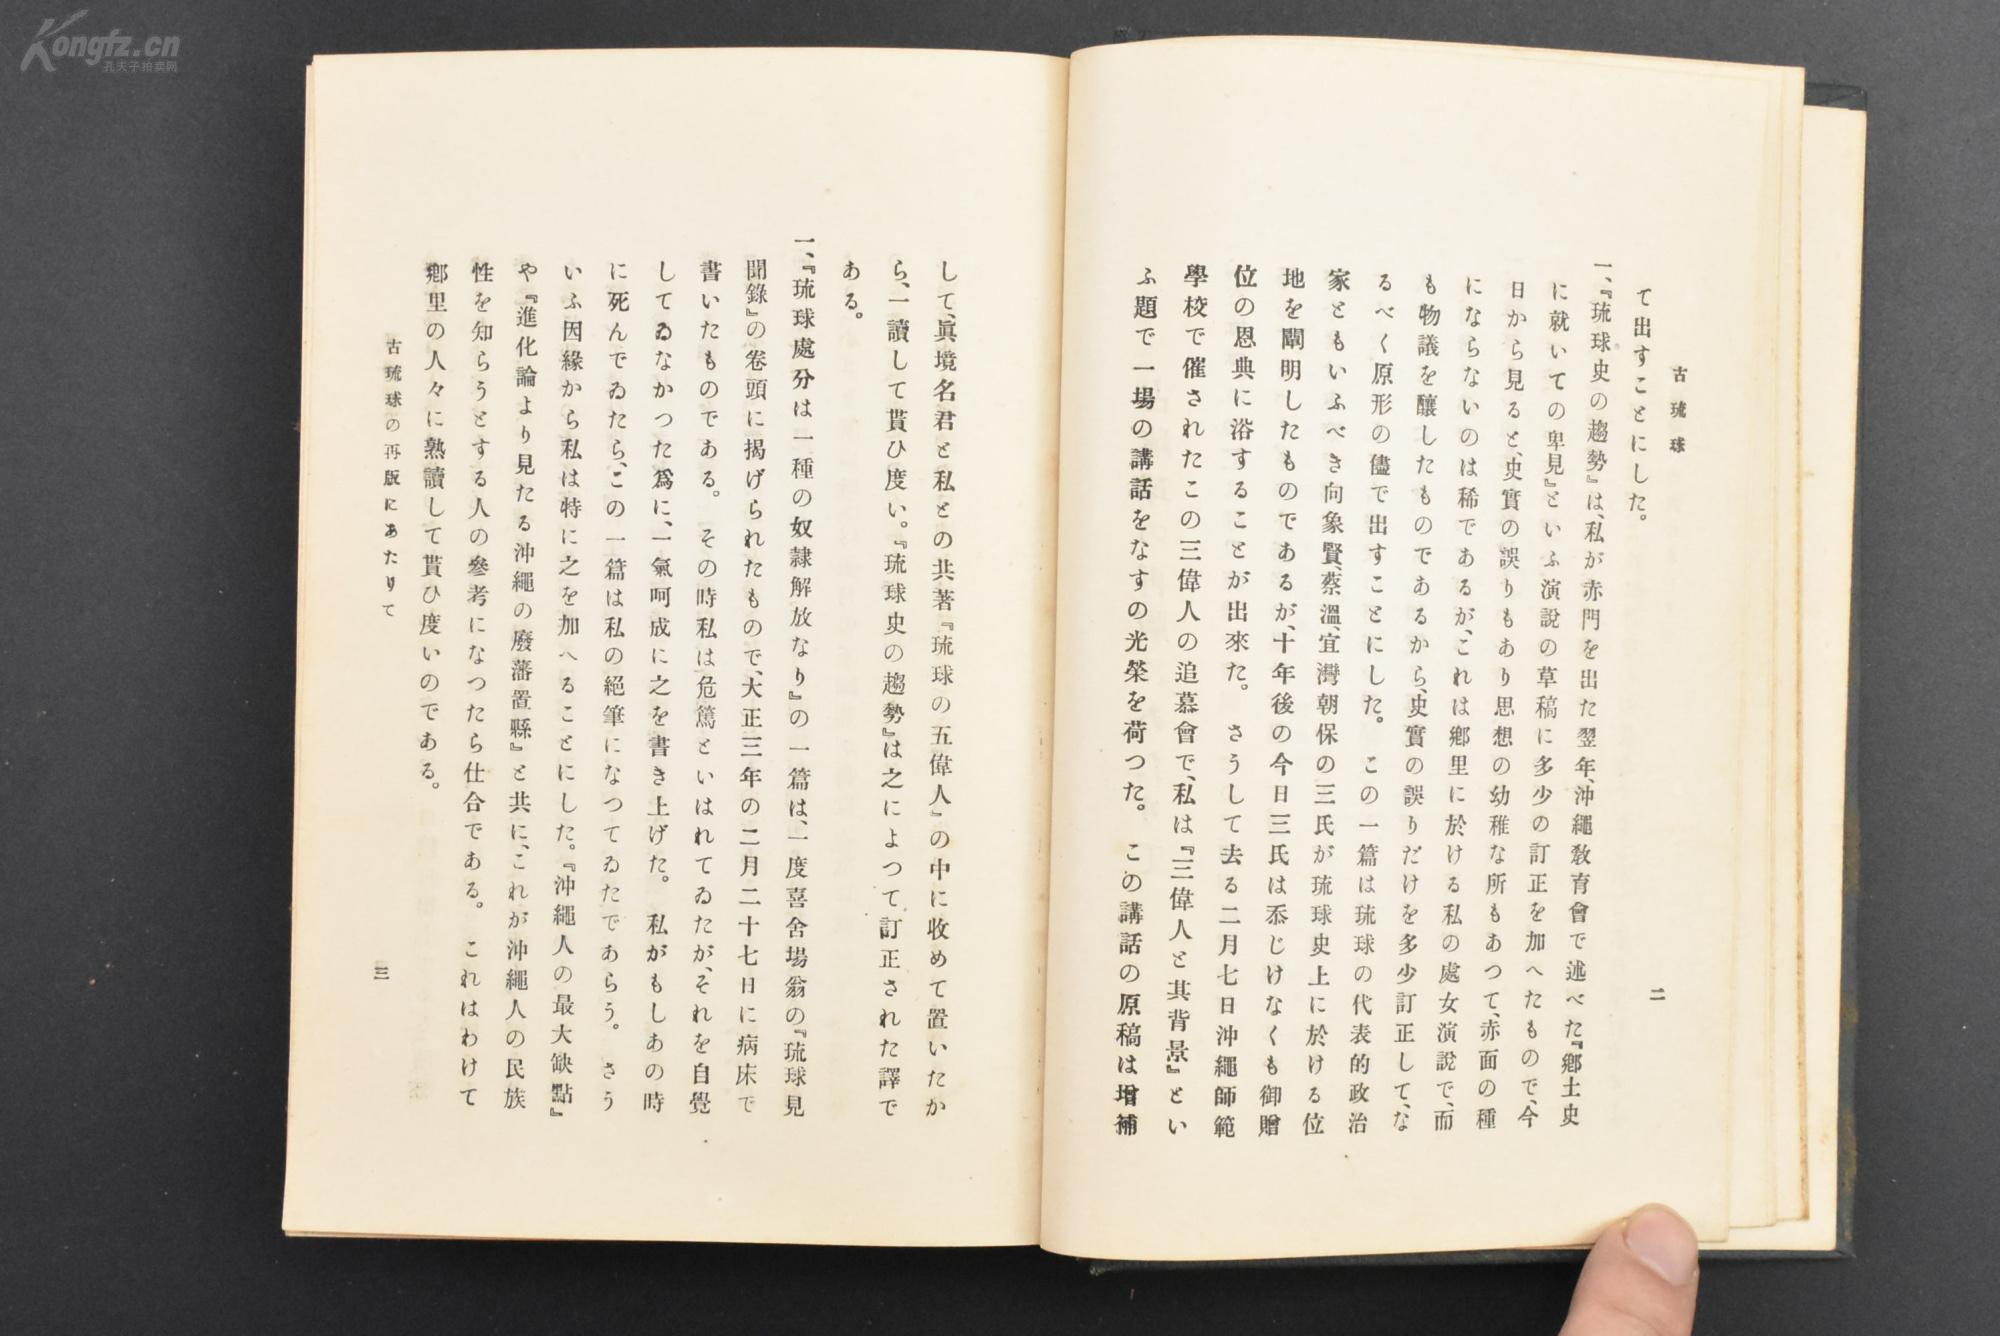 Kongfz.cn
孔夫子拍卖网
古琉球
二
て出すことにした。
一、『琉球史の趨勢』は、私が赤門を出た翌年、沖繩敎育會で述べた『鄕土史
に就いての卑見』といふ演說の草稿に多少の訂正を加へたもので、今
日から見ると、史實の誤りもあり思想の幼稚な所もあつて、赤面の種
にならないのは稀であるが、これは鄕里に於ける私の處女演說で、而
も物議を釀したものであるから、史實の誤りだけを多少訂正して、な
るべく原形の儘で出すことにした。この一篇は琉球の代表的政治
家ともいふべき向象賢、蔡溫、宜灣朝保の三氏が琉球史上に於ける位
地を闡明したものであるが、十年後の今日三氏は忝じけなくも御贈
位の恩典に浴することが出來た。さうして去る二月七日沖繩師範
學校で催されたこの三偉人の追慕會で、私は『三偉人と其背景』とい
ふ題で一場の講話をなすの光榮を荷つた。この講話の原稿は增補
して、眞境名君と私との共著『琉球の五偉人』の中に收めて置いたか
ら、一讀して貰ひ度い。『琉球史の趨勢』は之によつて訂正された譯で
ある。
一、『琉球處分は一種の奴隷解放なり』の一篇は、一度喜舍場翁の『琉球見
聞錄』の卷頭に揭げられたもので、大正三年の二月二十七日に病床で
書いたものである。その時私は危篤といはれてゐたが、それを自覺
してゐなかつた爲に、一氣呵成に之を書き上げた。私がもしあの時
に死んでゐたら、この一篇は私の絕筆になつてゐたであらう。さう
いふ因緣から私は特に之を加へることにした。『沖繩人の最大缺點』
や『進化論より見たる沖繩の廢藩置縣』と共に、これが沖繩人の民族
性を知らうとする人の參考になつたら仕合である。これはわけて
鄕里の人々に熟讀して貰ひ度いのである。
古琉球の再版にあたりて
三